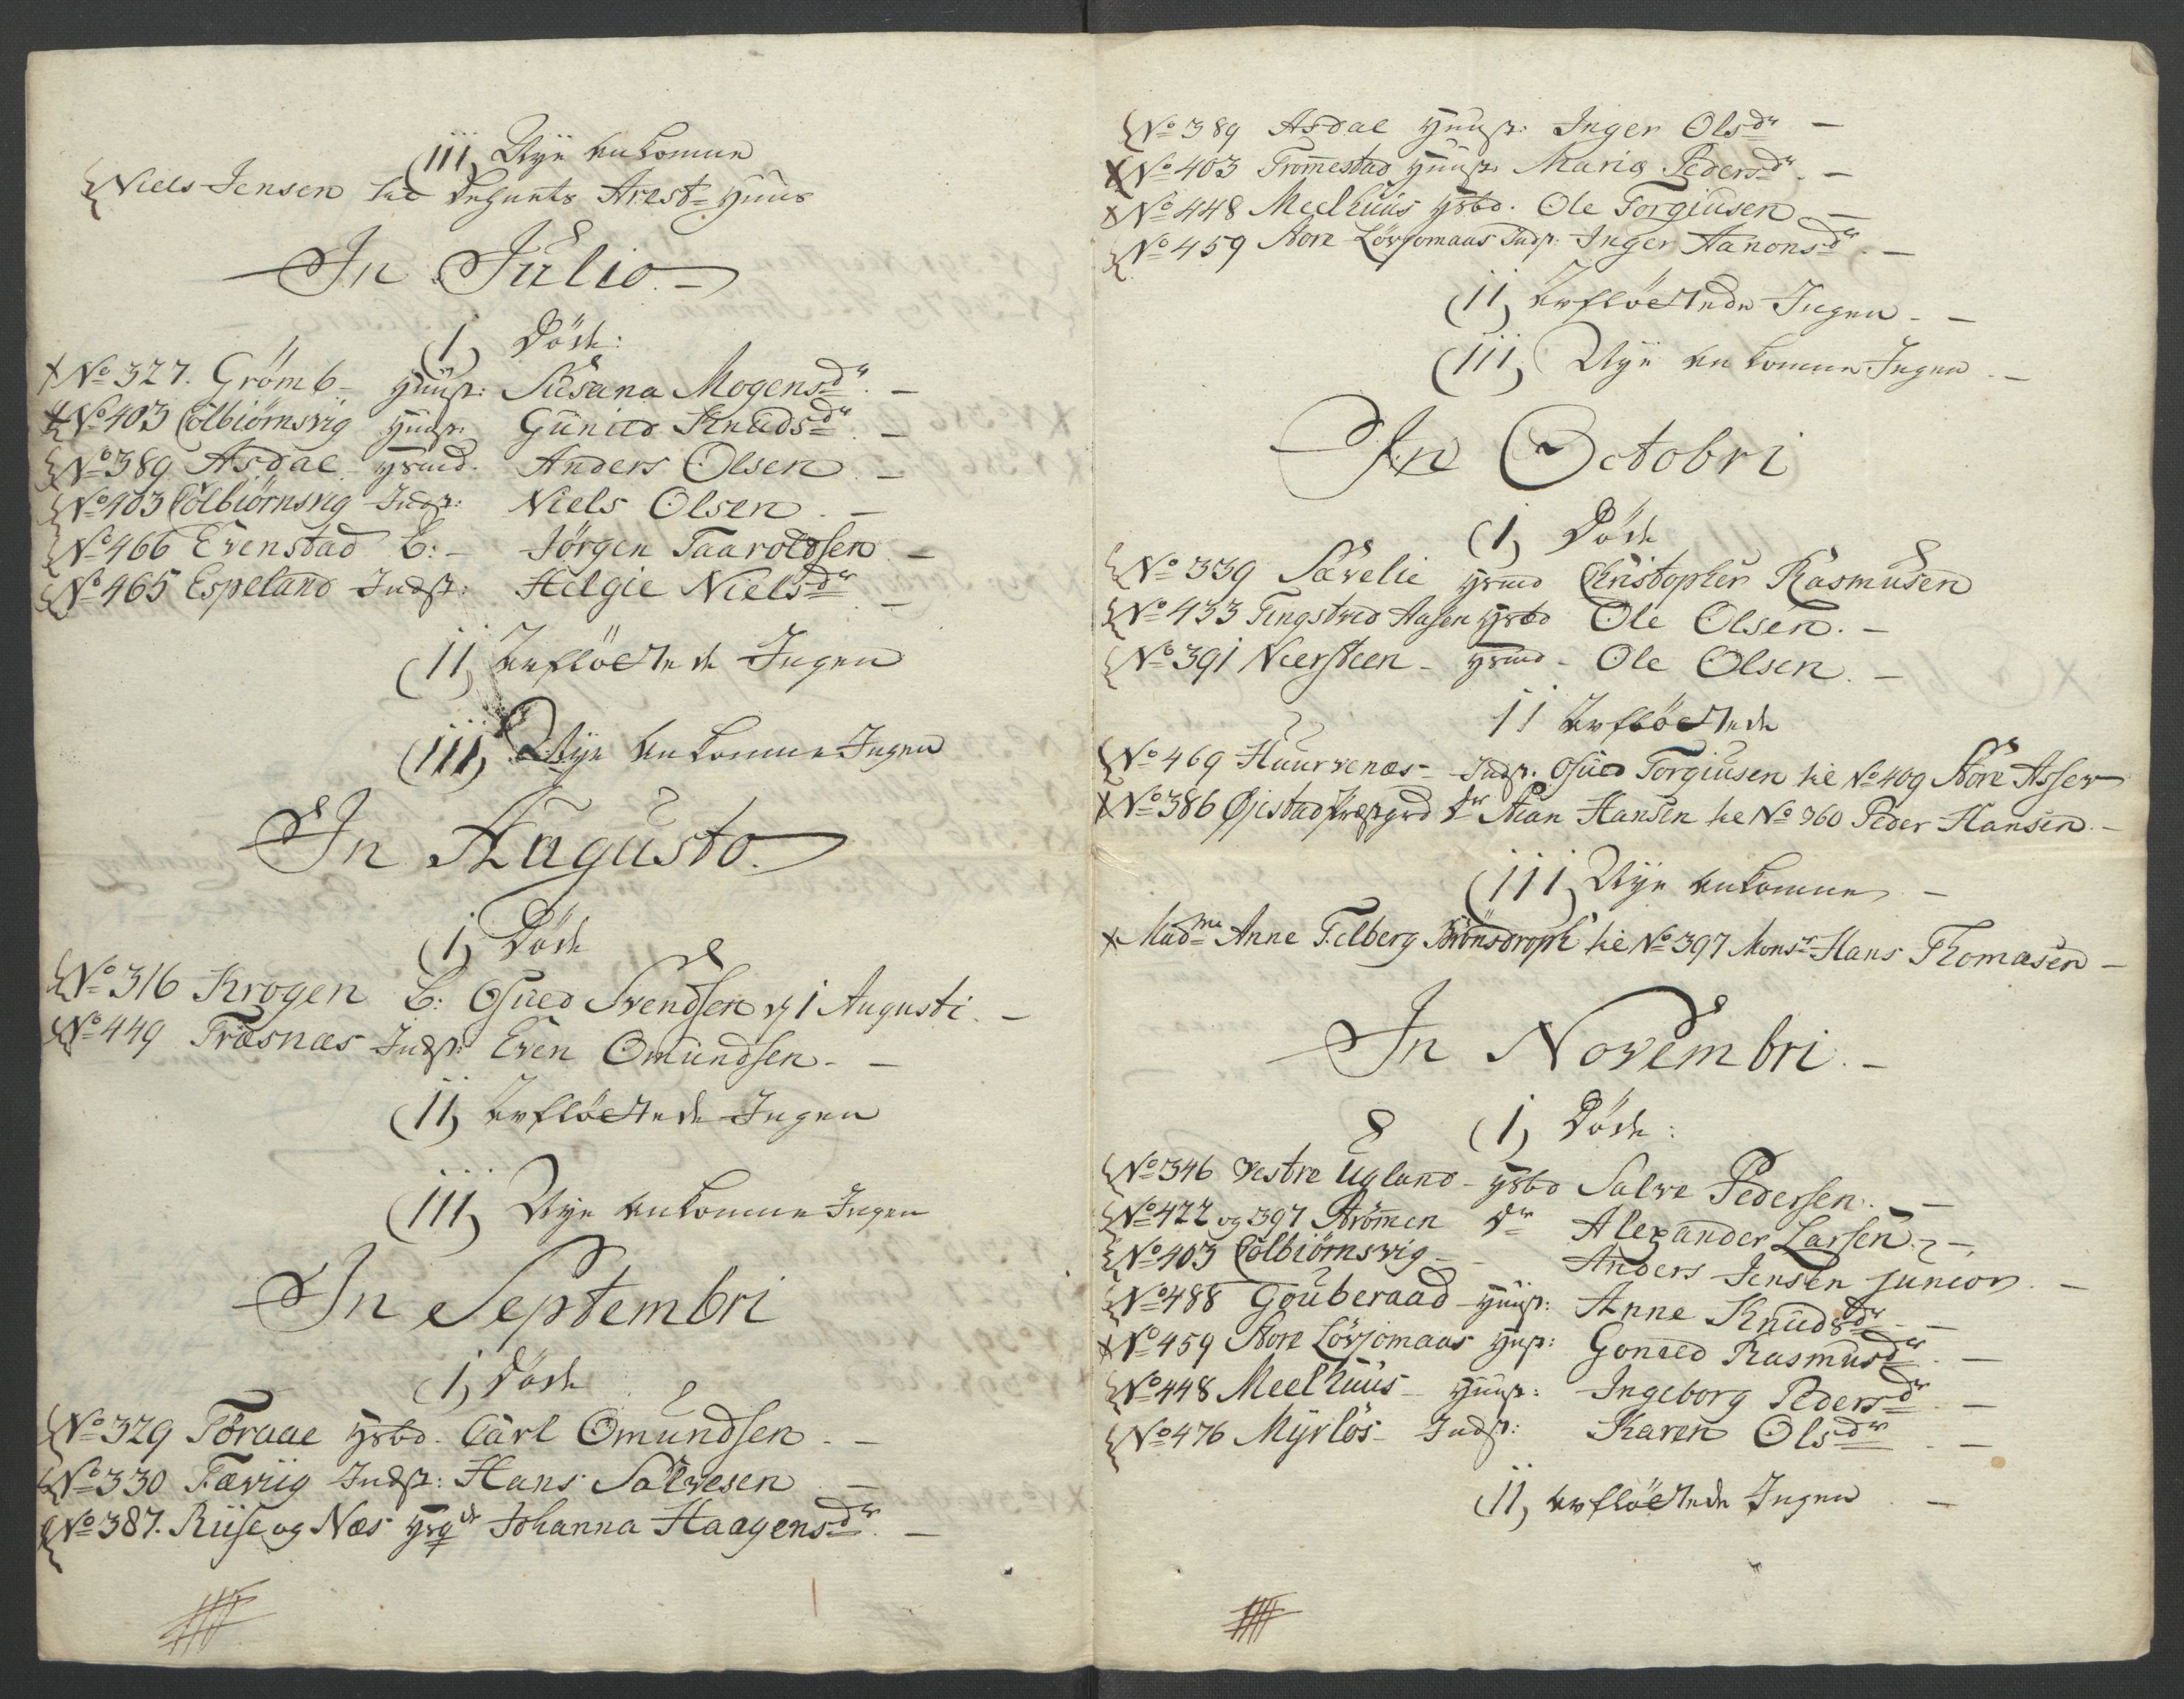 (III, Nÿe ankomne
Niels Jensen til Arest-Huus
In Julio. –
(I, Döde:
No 327. Grömb – Huusp: Susana Mogensdr. –
No 403 Colbiörnsvig Huusp: Gunild Knudsdr. –
No 389 Asdal Hsmd. Anders Olsen. –
No 403 Colbiörnsvig Indst: Niels Olsen. –
No 466 Evenstad B: – Jörgen Taaroldsen. –
No 465 Espeland Indst: Helgie Nielsdr. –
(II, Anflöttede Ingen
(III, Nÿe ankomne Ingen
In Augusto.
(I, Döde
No 316 Krogen B: Osued Svendsen d. 1 Augusti. –
No 449 Træsnæs Indst: Even Omundsen. –
(II, Anflöttede Ingen
(III, Nÿe ankomne Ingen
In Septembri
(I, Döde
No 329 Toraae Hsbd. Carl Omundsen. –
No 330 Færviig Indst: Hans Salvesen –
No 387. Riise og Næs Johanna Haagensdr. –
No 389 Asdal Huusp: Inger Olsdr –
No 403 Tromestad Huusp: Maria Pedersdr. –
No 448 Meelhuus Hsbd. Ole Torgiusen. –
No 459 Store Lövjomaas Indst: Inger Aanonsdr. –
(II, Anflöttede Ingen. –
(III, Nÿe ankomne Ingen. –
In Octobri
(I, Döde
No 339 Sævelie Hsmd Christopher Rasmusen
No 433 Tingstved Aasen Hsbd Ole Olsen. –
No 391 Neersteen – Hsmd – Ole Olsen. –
II Anflöttede
No 469 Huurvenæs – Indst. Osued Torgiusen til No 409 Store Asser
No 386 Öjestad Præstgrd Dr Stian Hansen til No 360 Peder Hansen. –
(III, Nÿe ankomne –
Madme Anne Felberg til No 397 Monsr Hans Thomasen –
In Novembri. –
(I, Döde:
No 346 Vestre Ugland – Hsbd Salve Pedersen. –
No 422 og 397 Strömmen Dr Alexander Larsen. –
No 403 Colbiörnsvig – Anders Jensen junior. –
No 488 Gouberaad Huusp: Anne Knudsdr –
No 459 Store Lövjomaas Husp: Goneld Rasmusdr. –
No 448 Meelhuus – Huusp: Ingeborg Pedersdr. –
No 476 Myrlös – Indst: Karen Olsdr. –
(II, Anflöttede Ingen –